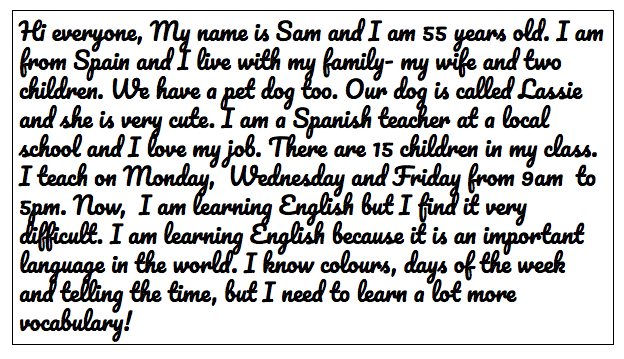 Hi everyone, My name is Sam and I am 55 years old. I am
from Spain and I live with my family- my wife and two
children. We have a pet dog too. Our dog is called Lassie
and she is very cute. I am a Spanish teacher at a local
school and I love my job. There are 15 children in my class.
I teach on Monday,  Wednesday and Friday from 9am  to
5pm. Now,  I am learning English but I find it very
difficult. I am learning English because it is an important
language in the world. I know colours, days of the week
and telling the time, but I need to learn a lot more
vocabulary!